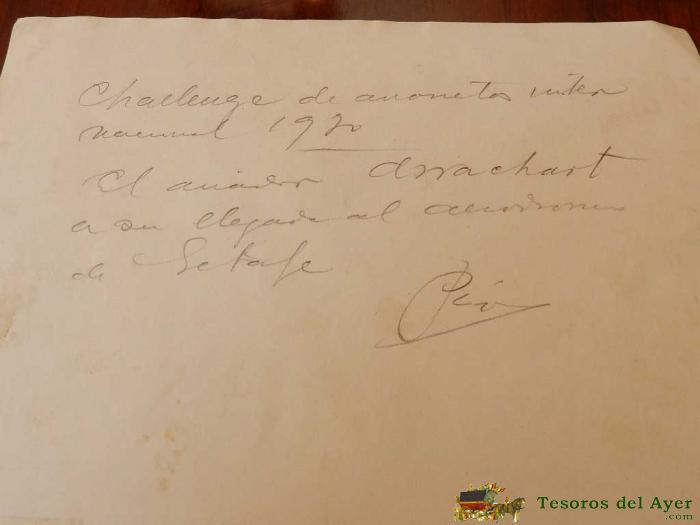 Challenge de avionetas inter
nacional 1930
El aviador Arrachart
a su llegada al aerodromo
de Getafe
Pío
Tesoros del Ayer
.com